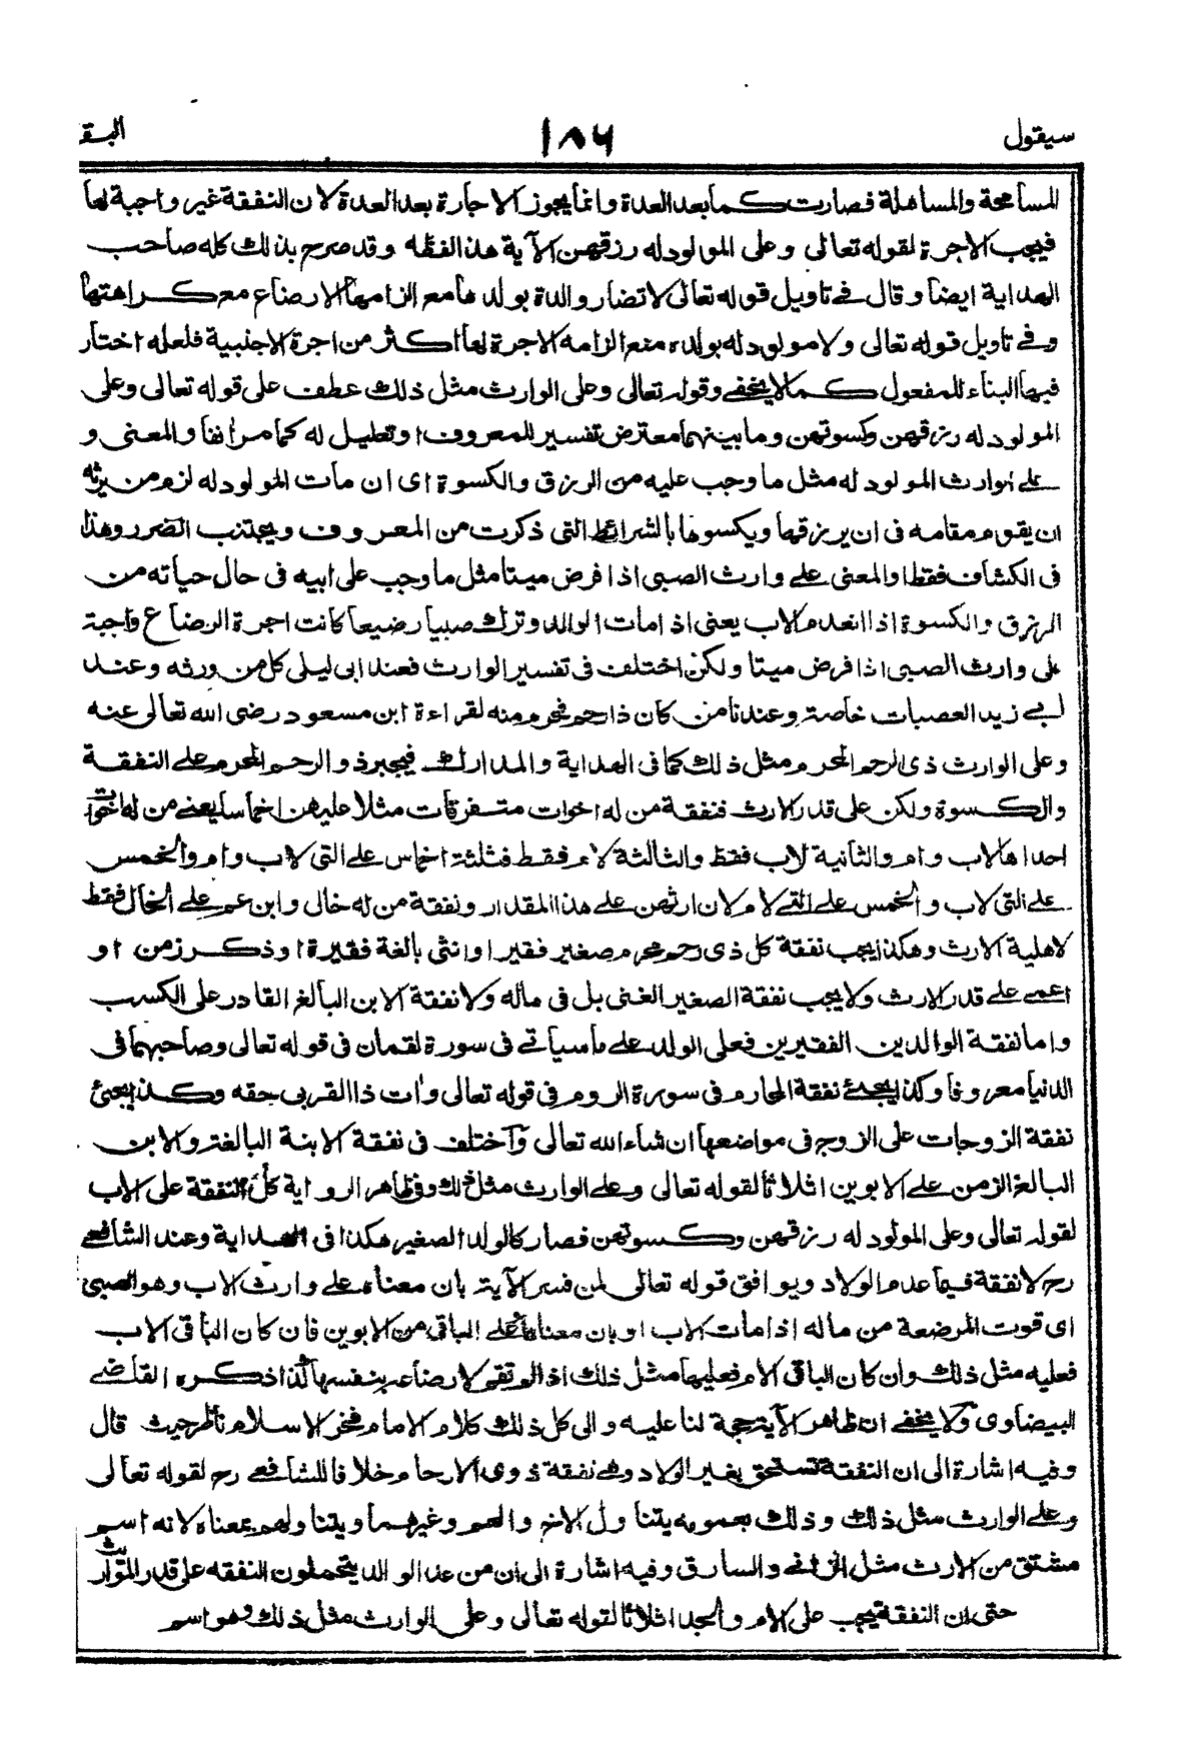 سيقول ١٨٦ البقـ
المسامحة والمساهلة فصارت كما بعد العدة وانما يجوز الاجارة بعد العدة لان النفقة غير واجبة لها
فيجب الاجرة لقوله تعالى وعلى المولود له رزقهن الآية هذا لفظه وقد صرح بذلك كله صاحب
الهداية ايضا وقال في تاويل قوله تعالى لا تضار والدة بولدها مع الزامها الارضاع مع كراهتها
وفي تاويل قوله تعالى ولا مولود له بولده منع الزامه الاجرة لها اكثر من اجرة الاجنبية فلعله اختار
فيها البناء للمفعول كما لا يخفى وقوله تعالى وعلى الوارث مثل ذلك عطف على قوله تعالى وعلى
المولود له رزقهن وكسوتهن وما بينهما معترض تفسير للمعروف او تعليل له كما مر انفا والمعنى و
على وارث المولود له مثل ما وجب عليه من الرزق والكسوة اى ان مات المولود له لزم من يرثه
ان يقوم مقامه فى ان يرزقها ويكسوها بالشرائط التى ذكرت من المعروف ويجتنب الضرر وهذا
فى الكشاف فقط او المعنى على وارث الصبى اذا فرض ميتا مثل ما وجب على ابيه فى حال حياته من
الرزق والكسوة اذا انعدم الاب يعنى اذا مات الوالد وترك صبيا رضيعا كانت اجرة الرضاع واجبة
على وارث الصبى اذا فرض ميتا ولكن اختلف فى تفسير الوارث فعند ابى ليلى كل من ورثه وعند
ابى زيد العصبات خاصة وعندنا من كان ذا رحم محرم منه لقراءة ابن مسعود رضى الله تعالى عنه
وعلى الوارث ذى الرحم المحرم مثل ذلك كما فى الهداية والمدارك فيجبر ذو الرحم المحرم على النفقة
والكسوة ولكن على قدر الارث فنفقة من له اخوات متفرقات مثلا عليهن اخماسا يعنى من له اخوات
احداها لاب وام والثانية لاب فقط والثالثة لام فقط فثلثة اخماس على التى لاب وام والخمس
على التى لاب والخمس على التى لام لان ارثهن على هذا المقدار ونفقة من له خال وابن عم على الخال فقط
لاهلية الارث وهكذا يجب نفقة كل ذى رحم محرم صغير فقير او انثى بالغة فقيرة او ذكر زمن او
اعمى على قدر الارث ولا يجب نفقة الصغير الغنى بل فى ماله ولا نفقة الابن البالغ القادر على الكسب
واما نفقة الوالدين الفقيرين فعلى الولد على ما سياتى فى سورة لقمان فى قوله تعالى وصاحبهما فى
الدنيا معروفا وكذا يجئ نفقة المحارم فى سورة الروم فى قوله تعالى وات ذا القربى حقه وكذا يجئ
نفقة الزوجات على الزوج فى مواضعها ان شاء الله تعالى وآختلف فى نفقة الابنة البالغة والابن
البالغ الزمن على الابوين اثلاثا لقوله تعالى وعلى الوارث مثل ذلك وفى ظاهر الرواية كل النفقة على الاب
لقوله تعالى وعلى المولود له رزقهن وكسوتهن فصار كالولد الصغير هكذا فى الهداية وعند الشافعى
رح لا نفقة فيما عدم الولاد ويوافق قوله تعالى لمن فسر الآية بان معناه على وارث الاب وهو الصبى
اى قوت المرضعة من ماله اذا مات الاب او بان معناها على الباقى من الابوين فان كان الباقى الاب
فعليه مثل ذلك وان كان الباقى الام فعليها مثل ذلك اذا لم تقم لارضاعه بنفسها كذا ذكره القاضى
البيضاوى ولا يخفى ان ظاهر الآية حجة لنا عليه والى كل ذلك كلام الامام فخر الاسلام ناظر حيث قال
وفيه اشارة الى ان النفقة تستحق بغير الولاد وهى نفقة ذوى الارحام خلافا للشافعى رح لقوله تعالى
وعلى الوارث مثل ذلك وذلك بعمومه يتناول الاخ والعم وغيرهما ويتناولهم بمعناه لانه اسم
مشتق من الارث مثل الزانى والسارق وفيه اشارة الى ان من عدا الوالد يتحملون النفقه على قدر المواريث
حتى ان النفقة يجب على الام والجد اثلاثا لقوله تعالى وعلى الوارث مثل ذلك وهو اسم